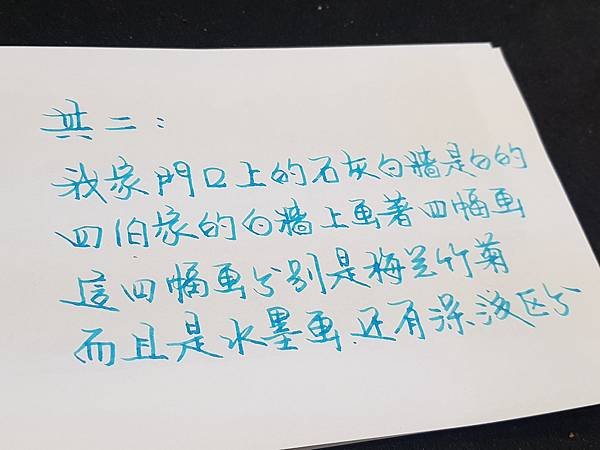 其二：
我家門口上的石灰白牆是白的
四伯家的白牆上画著四幅画
這四幅画分别是梅兰竹菊
而且是水墨画.还有深淺区分